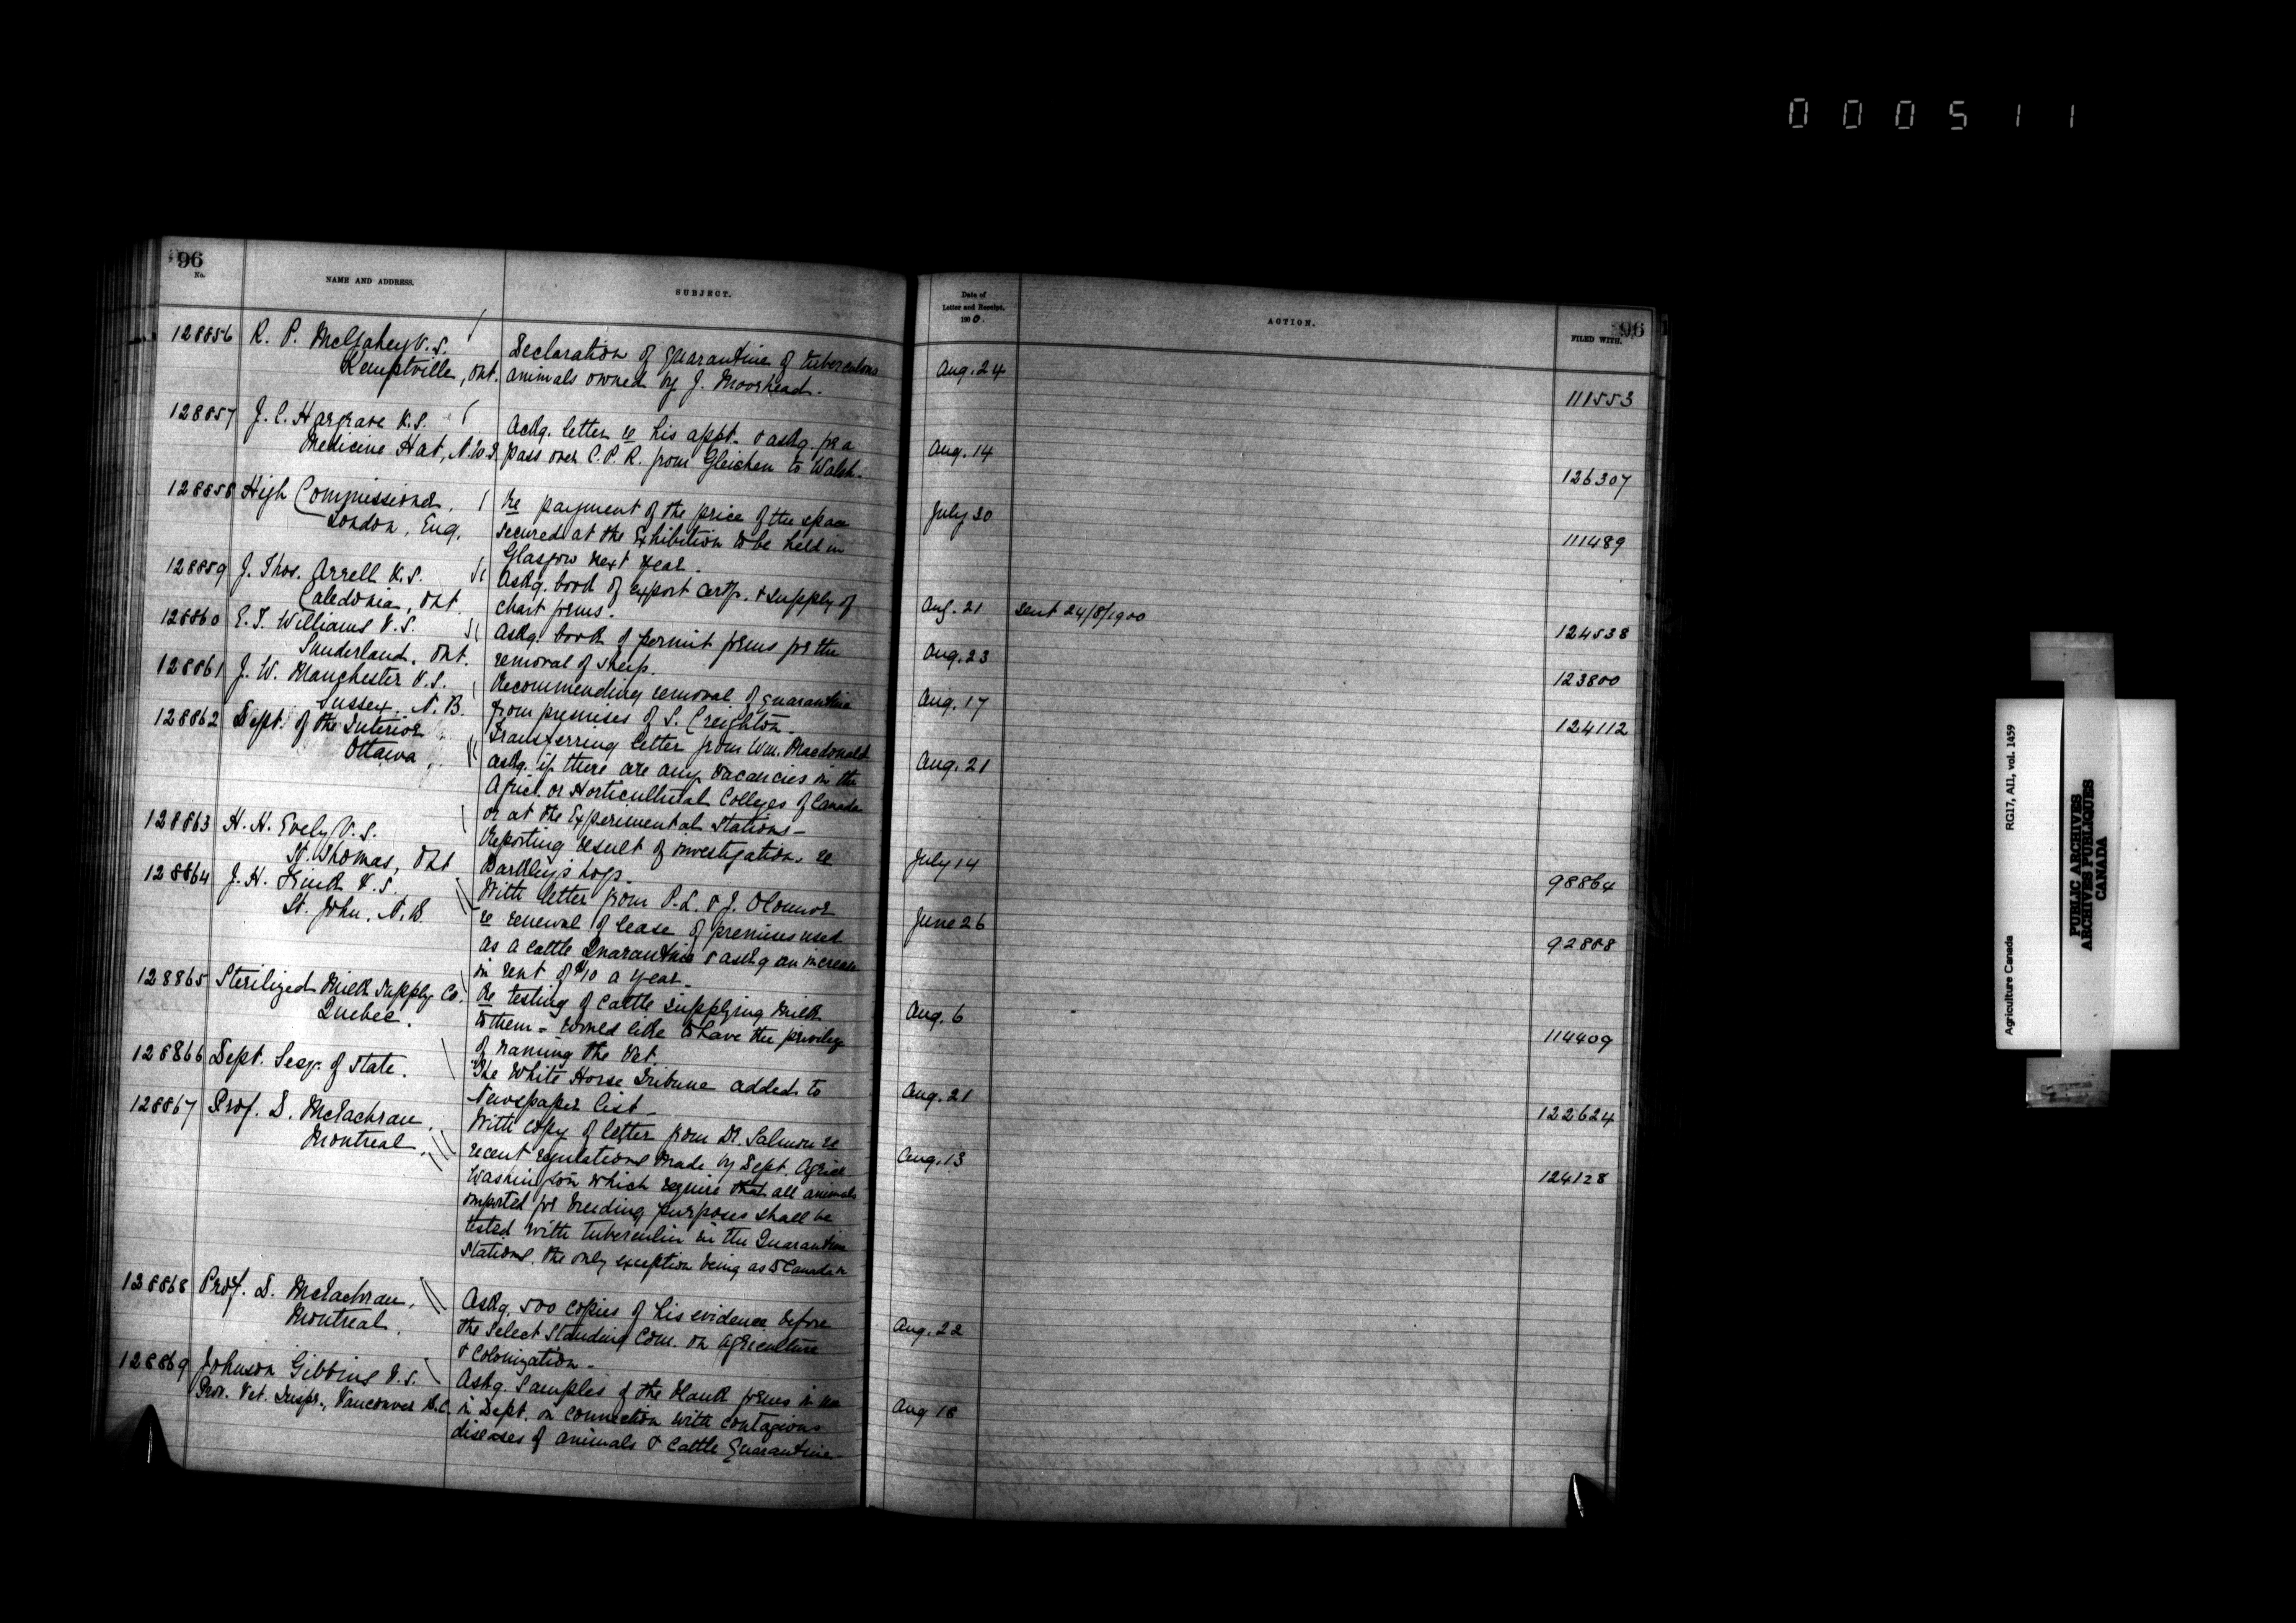 000511
96
No.
NAME AND ADDRESS.
SUBJECT.
128856 R. P. McGahey V.S.
Kemptville, Ont.
Declaration of quarantine of tuberculous
animals owned by J. Moorhead.
128857 J. C. Hargrave V.S.
Medicine Hat, N.W.T.
Ackg. letter re his appt. & askg. for a
pass over C.P.R. from Gleichen to Walsh.
128858 High Commissioner,
London, Eng.
Re payment of the price of the space
secured at the Exhibition to be held in
Glasgow next year.
128859 J. Thos. Arrell V.S.
Caledonia, Ont.
Askg. book of export certf. & supply of
chart forms.
128860 E. T. Williams V.S.
Sunderland, Ont.
Askg. book of permit forms for the
removal of sheep.
128861 J. W. Manchester V.S.
Sussex, N.B.
Recommending removal of quarantine
from premises of S. Creighton.
128862 Dept. of the Interior
Ottawa,
Transferring letter from Wm. Macdonald
askg. if there are any vacancies in the
Agricl. or Horticultural Colleges of Canada
or at the Experimental Stations—
128863 H. H. Evely V.S.
St. Thomas, Ont.
Reporting result of investigation re
hogs.
128864 J. H. Frink V.S.
St. John, N.B.
With letter from P. L. & J. OConnor
re renewal of lease of premises used
as a cattle Quarantine & askg an increase
in rent of $10 a year.
128865 Sterilized Milk Supply Co.
Quebec.
Re testing of cattle supplying milk
to them – would like to have the privilege
of naming the Vet.
128866 Dept. Secy. of State.
"The White Horse Tribune added to
Newspaper list—
128867 Prof. D. McEachran,
Montreal,
With copy of letter from Dr. Salmon re
recent regulations made by Dept. Agricr
Washington which require that all animals
imported for breeding purposes shall be
tested with tuberculin in the Quarantine
stations, the only exception being as to Canadan
128868 Prof. D. McEachran,
Montreal,
Askg. 500 copies of his evidence before
the Select Standing Com. on Agriculture
& Colonization—
128869 Johnson Gibbins V.S.
Prov. Vet. Inspr., Vancouver B.C.
Askg. samples of the blank forms in use
in Dept. in connection with contagious
diseases of animals & cattle Quarantine—
96
Date of
Letter and Receipt,
1900.
ACTION.
FILED WITH.
Aug. 24
111553
Aug. 14
126307
July 30
111489
Aug. 21 sent 24/8/1900
124538
Aug. 23
123800
Aug. 17
124112
Aug. 21
July 14
98864
June 26
92888
Aug. 6
114409
Aug. 21
122624
Aug. 13
124128
Aug. 22
Aug 18
Agriculture Canada RG17, AII, vol. 1459
PUBLIC ARCHIVES
ARCHIVES PUBLIQUES
CANADA